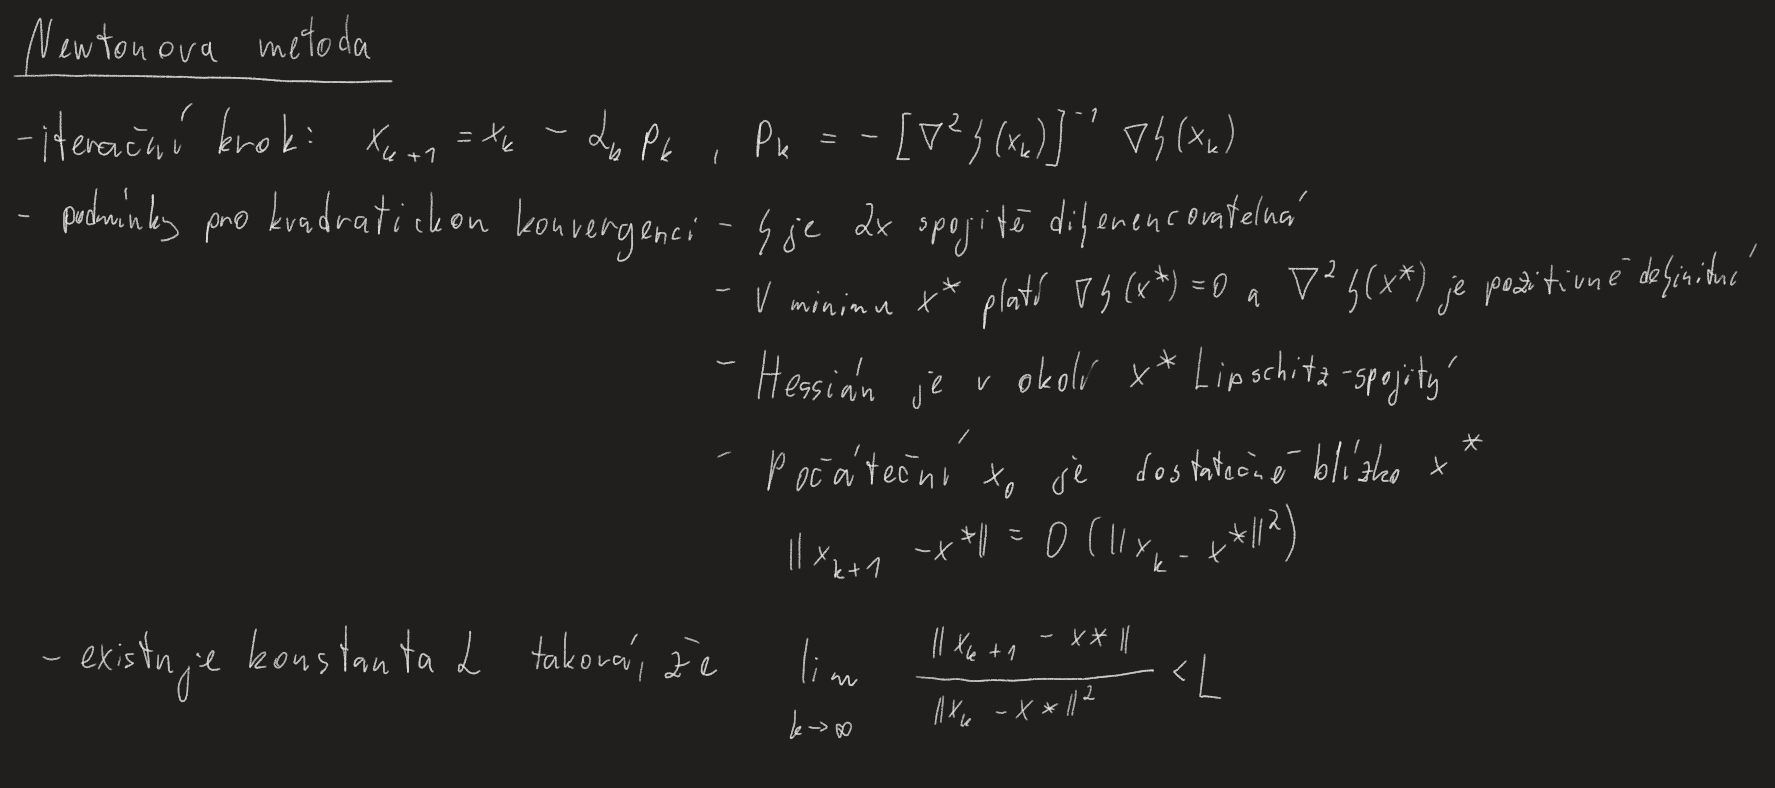 Newtonova metoda
- iterační krok: x_{k+1} = x_k - α_k p_k , p_k = - [∇² f(x_k)]⁻¹ ∇f(x_k)
- podmínky pro kvadratickou konvergenci - f je 2x spojitě diferencovatelná
- V minimu x* platí ∇f(x*) = 0 a ∇² f(x*) je pozitivně definitní
- Hessián je v okolí x* Lipschitz-spojitý
- Počáteční x₀ je dostatečně blízko x*
||x_{k+1} - x*|| = O (||x_k - x*||²)
- existuje konstanta L taková, že lim_{k→∞} ||x_{k+1} - x*|| / ||x_k - x*||² < L